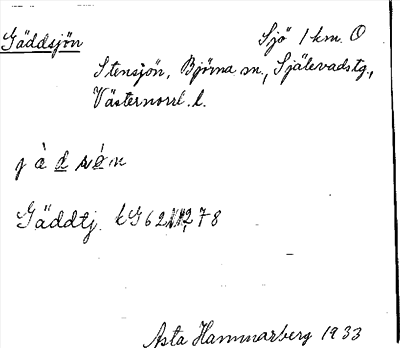 Gäddsjön Sjö 1 km. O
Stensjön, Björna sn., Själevadstg.,
Västernorrl. l.
Gäddtj. kG62 278
Asta Hammarberg 1933